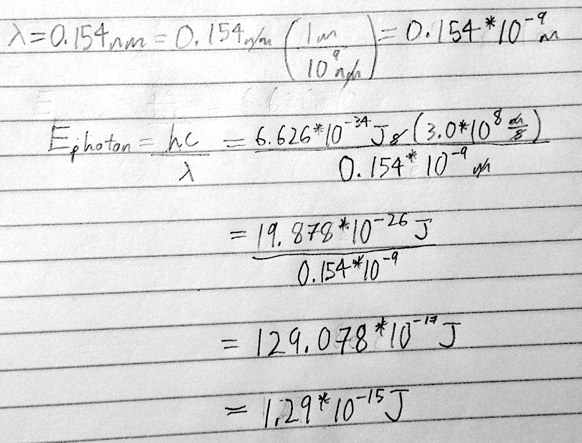 λ=0.154nm = 0.154nm (1m/10^9 nm) = 0.154*10^-9 m
E photon = hc/λ = 6.626*10^-34 Js (3.0*10^8 m/s)/0.154*10^-9 m
= 19.878*10^-26 J/0.154*10^-9
= 129.078*10^-17 J
= 1.29*10^-15 J